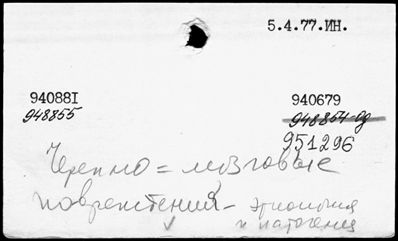 5.4.77.ИН.
940881 940679
948855 948854-од
951296
Черепно=мозговые
повреждения – этиология
и патогенез